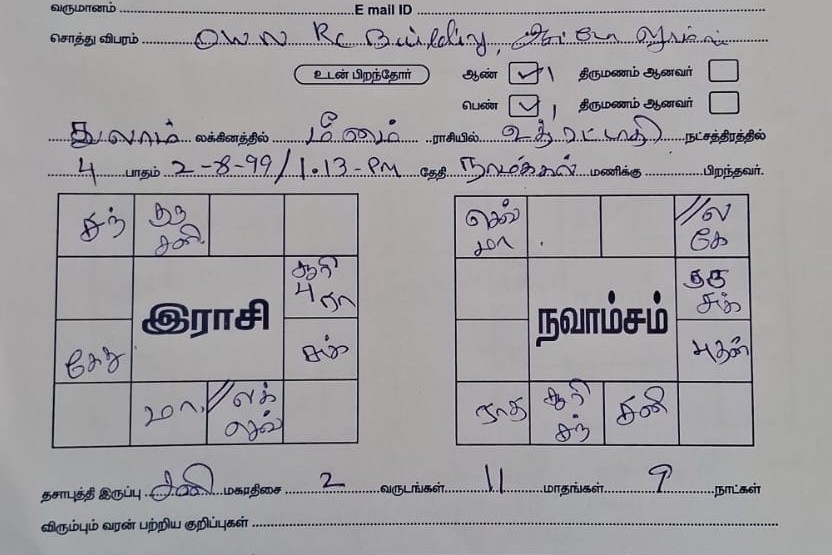 வருமானம் ........ E mail ID ........
சொத்து விபரம் Own Rc Building,
உடன் பிறந்தோர் ஆண் ✓ 1 திருமணம் ஆனவர்
பெண் ✓ 1 திருமணம் ஆனவர்
துலாம் லக்கினத்தில் மீனம் ராசியில் உத்ரட்டாதி நட்சத்திரத்தில்
4 பாதம் 2-8-99/1.13-PM தேதி நாமக்கல் மணிக்கு ........ பிறந்தவர்.
சந் குரு சனி
சூரி பு ரா
இராசி
கேது சுக்
மா. // லக் செவ்
செவ் மா // ல கே
குரு சுக்
நவாம்சம்
புதன்
ராகு சூரி சந் சனி
தசாபுத்தி இருப்பு சனி மகாதிசை 2 வருடங்கள் 11 மாதங்கள் 9 நாட்கள்
விரும்பும் வரன் பற்றிய குறிப்புகள் ........